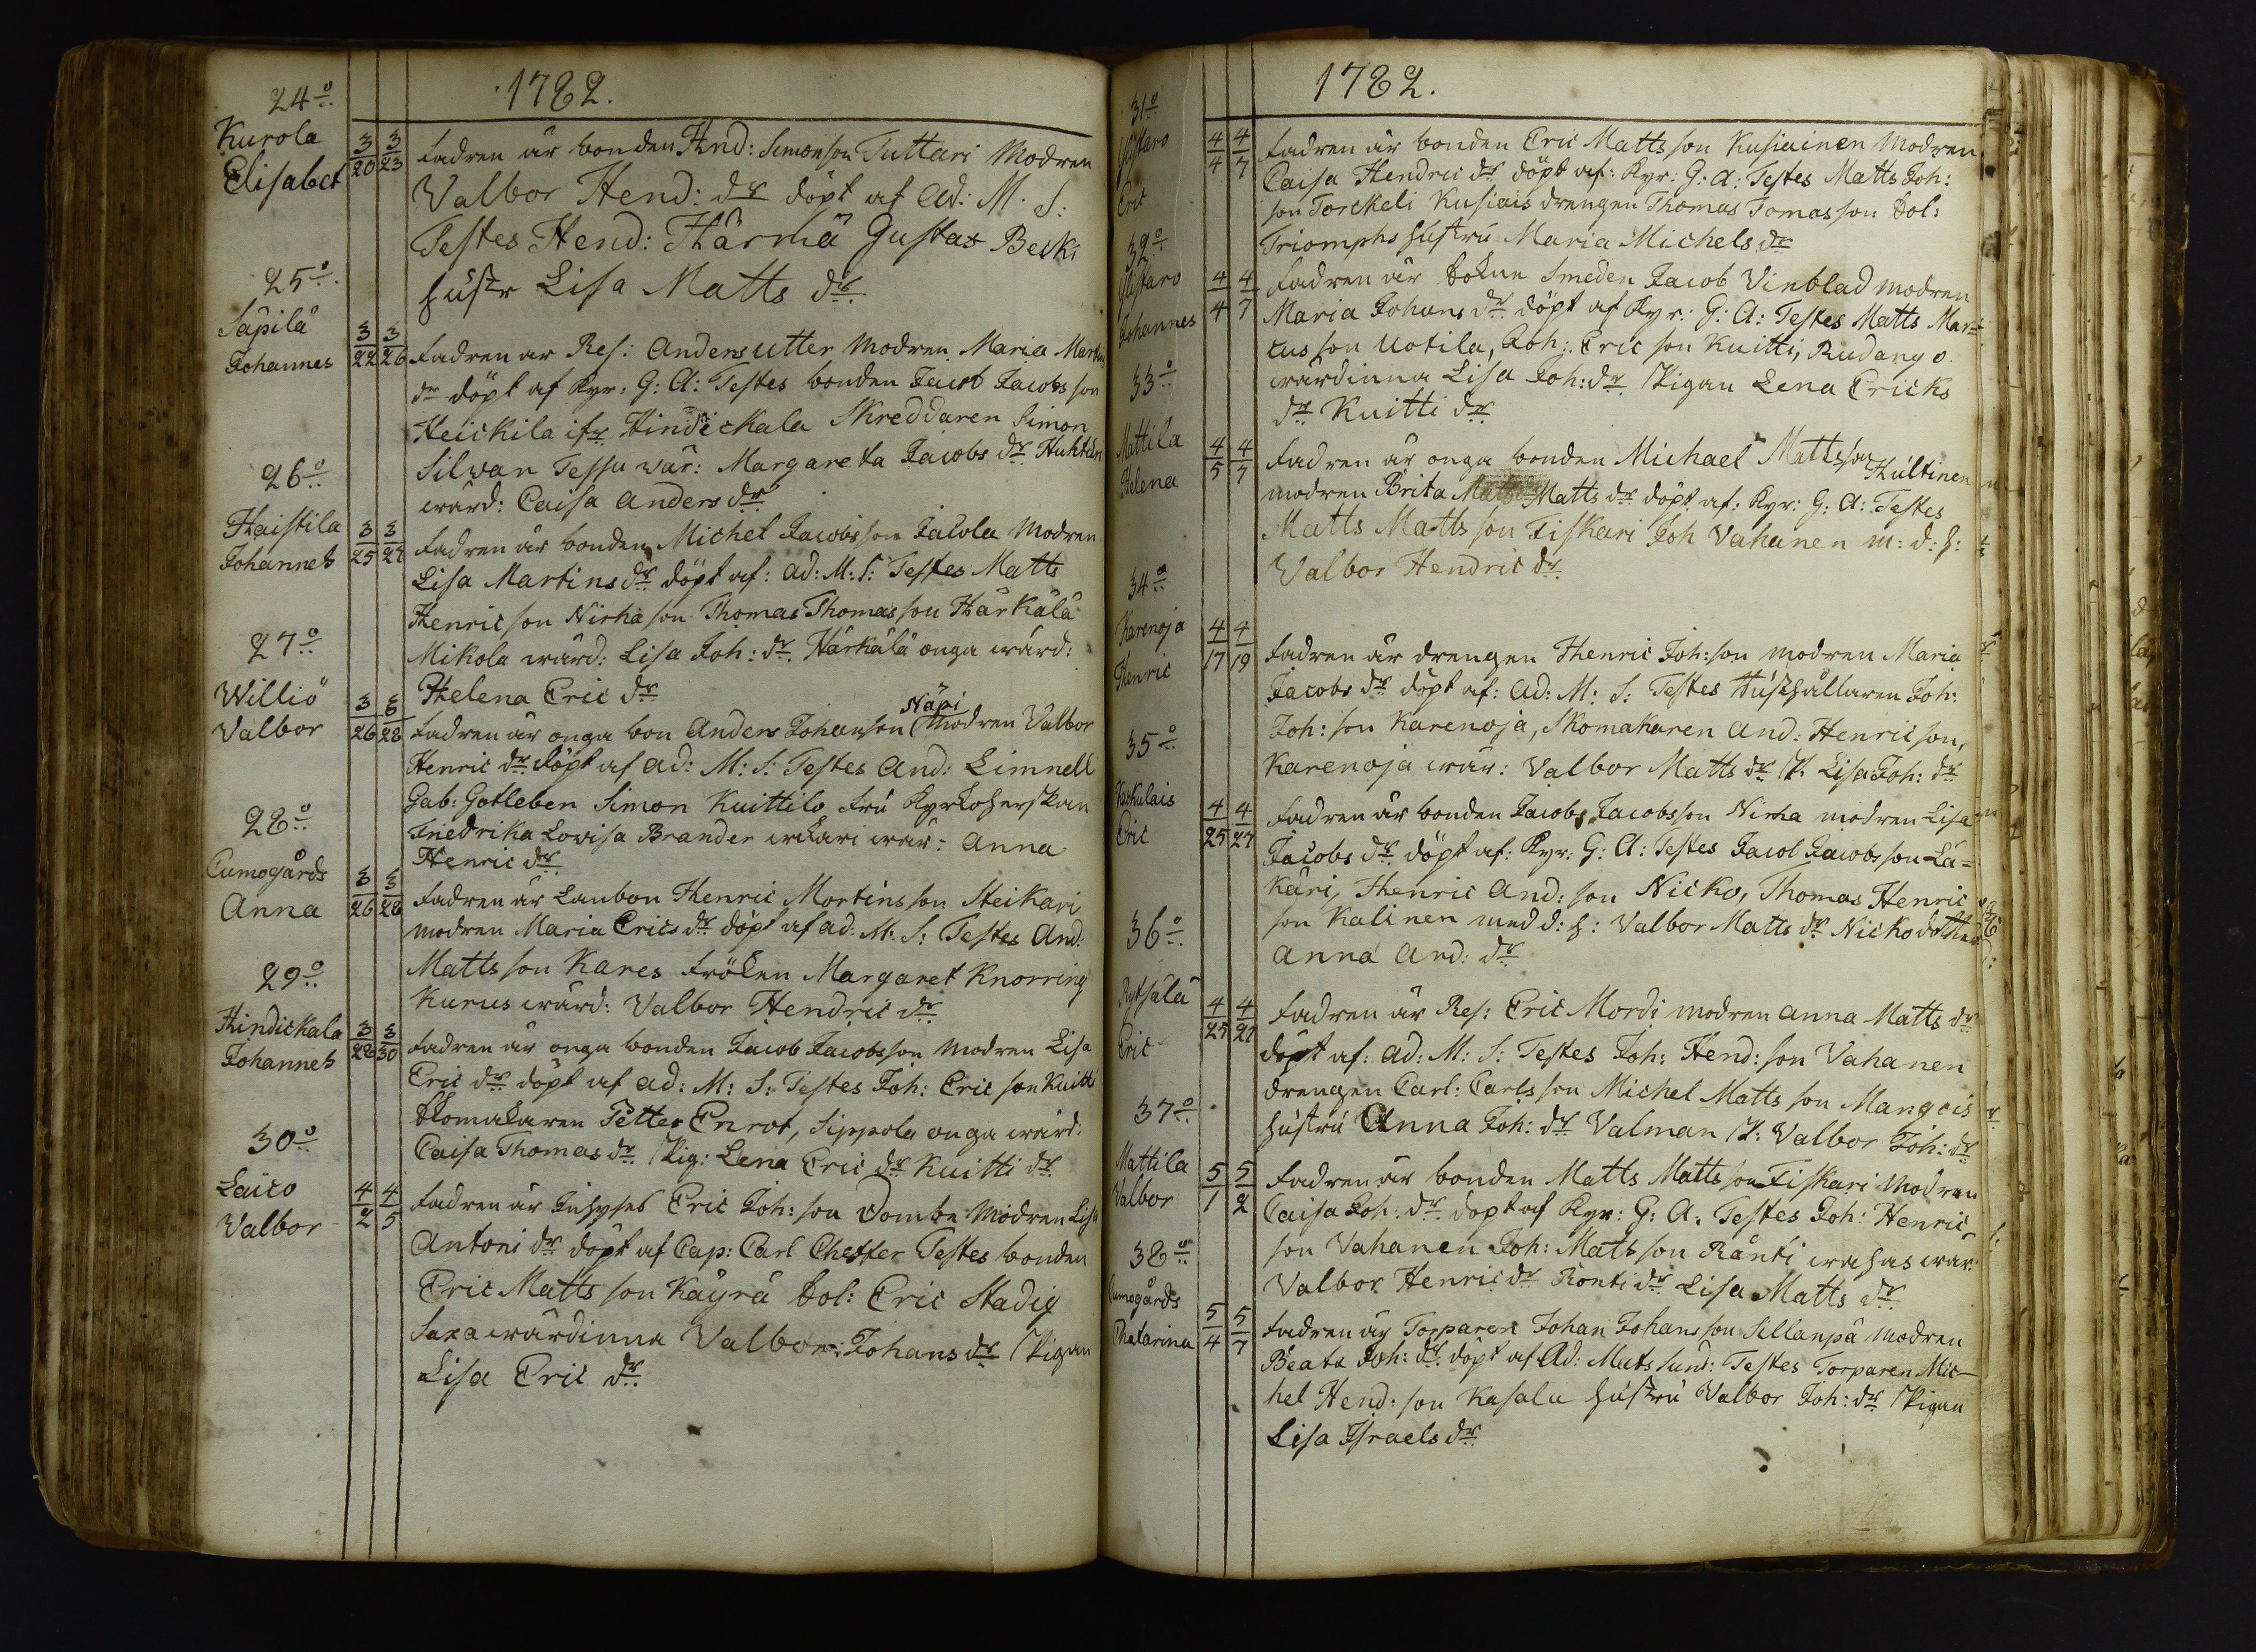 1782.
24o
Kurola
Elisabet
3/20 3/23
fadren är bonden Hend: Simonson Tuttari Modren
Valbor Hend: dr döpt af Ad: M: S:
Testes Hend: Härmä Gustav Beck:
hustr Lisa Matts dr
25o
Säpilä
Johannes
3/22 3/26
fadren är Res: Anders utter Modren Maria Martins
dr döpt af Kyr: G: A: Testes bonden Jacob Jacobs son
Heickila ifr Hindickala Skreddaren Simon
Silwan Tessu wär: Margareta Jacobs dr Huhtari
wärd: Caisa Anders dr
26o
Haistila
Johannes
3/25 3/27
fadren är bonden Michel Jacobsson Jacola Modren
Lisa Martins dr döpt af: Ad: M: S: Testes Matts
Henric son Nirha son Thomas Thomas son Härkälä
Mikola wärd: Lisa Joh: dr Härkälä onga wärd:
Helena Eric dr
27o
Williö
Valbor
3/26 3/28
fadren är onga bon Anders Johanson Näpi Modren Valbor
Henric dr döpt af Ad: M: S: Testes And: Limnell
Gab: Gotleben Simon Kuittilo fru Kyrkoherskan
Friedrika Lovisa Brander wär: Anna
Henric dr
28o
Cumogårds
Anna
3/26 3/28
fadren är Lanbon Henric Mortins son Steikari
modren Maria Erics dr döpt af Ad: M: S: Testes And:
Matts son Kares fröken Margaret Knorring
Kurus wärd: Valbor Hendric dr
29o
Hindickala
Johannes
3/28 3/30
fadren är onga bonden Jacob Jacobsson Modren Lisa
Eric dr döpt af Ad: M: S: Testes Joh: Eric son Kuitti
skomakaren Petter Enrot, Sippola onga wärd:
Caisa Thomas dr Pig: Lena Eric dr Kuitti dr
30o
Laico
Valbor
4/2 4/5
fadren är Inhyses Eric Joh: son Vombe Modren Lisa
Antoni dr döpt af Cap: Carl Cheffer Testes bonden
Eric Matts son Käyrä Sol: Eric Stadig
Saxa wärdinna Valbor: Johans dr Pigan
Lisa Eric dr
1782.
31o
Sistaro
Eric
4/4 4/7
fadren är bonden Eric Matts son Kusiainen Modren
Caisa Hendric dr döpt af: Kyr: G: A: Testes Matts Joh:
son Torckeli Kusiais drengen Thomas Tomas son Sol:
Triomphs hustru Maria Michels dr
32o
Sistaro
Johannes
4/4 4/7
fadren är Sokne Smeden Jacob Vinblad modren
Maria Johans dr döpt af Kyr: G: A: Testes Matts Mar=
cus son Uotila, Joh: Eric son Kuitti, Rudango
wärdinna Lisa Joh: dr Pigan Lena Ericks
dr Kuitti dr
33o
Mattila
Helena
4/5 4/7
fadren är onga bonden Michael Mattsson Hultinen
modren Brita Matts dr döpt af: Kyr: G: A: Testes
Matts Matts son Fiskari Joh Vahanen m: d: h:
Valbor Hendric dr
34o
Karenoja
Henric
4/17 4/19
fadren är drengen Henric Joh: son modren Maria
Jacobs dr döpt af: Ad: M: S: Testes Hushållaren Joh:
Joh: son Karenoja, Skomakaren And: Henric son,
Karenoja wär: Valbor Matts dr P: Lisa Joh: dr
35o
Kaskulais
Eric
4/25 4/27
fadren är bonden Jacobs Jacobsson Nirha modren Lisa
Jacobs dr döpt af: Kyr: G: A: Testes Jacob Jacobs son Lä=
käri, Henric And: son Nicko, Thomas Henric
son Kalinen med d: h: Valbor Matts dr Nicko dotter
Anna And: dr
36o
Rytsälä
Eric
4/25 4/27
fadren är Res: Eric Mordi modren Anna Matts dr
döpt af: Ad: M: S: Testes Joh: Hend: son Vahanen
drengen Carl: Carls son Michel Matts son Mangois
hustru Anna Joh: dr Valman P: Valbor Joh: dr
37o
Mattila
Valbor
5/1 5/2
fadren är bonden Matts Matts son Fiskari Modren
Caisa Joh: dr döpt af Kyr: G: A: Testes Joh: Henric
son Vahanen Joh: Matts son Ränti wahas wär:
Valbor Henric dr Ronti dr Lisa Matts dr
38o
Cumogårds
Chatarina
5/4 5/7
fadren är Torparen Johan Johans son Sillanpä modren
Beata Joh: dr döpt af Ad: Mats Sund: Testes Torparen Mic-
hel Hend: son Kasala hustru Valbor Joh: dr Pigan
Lisa Israels dr